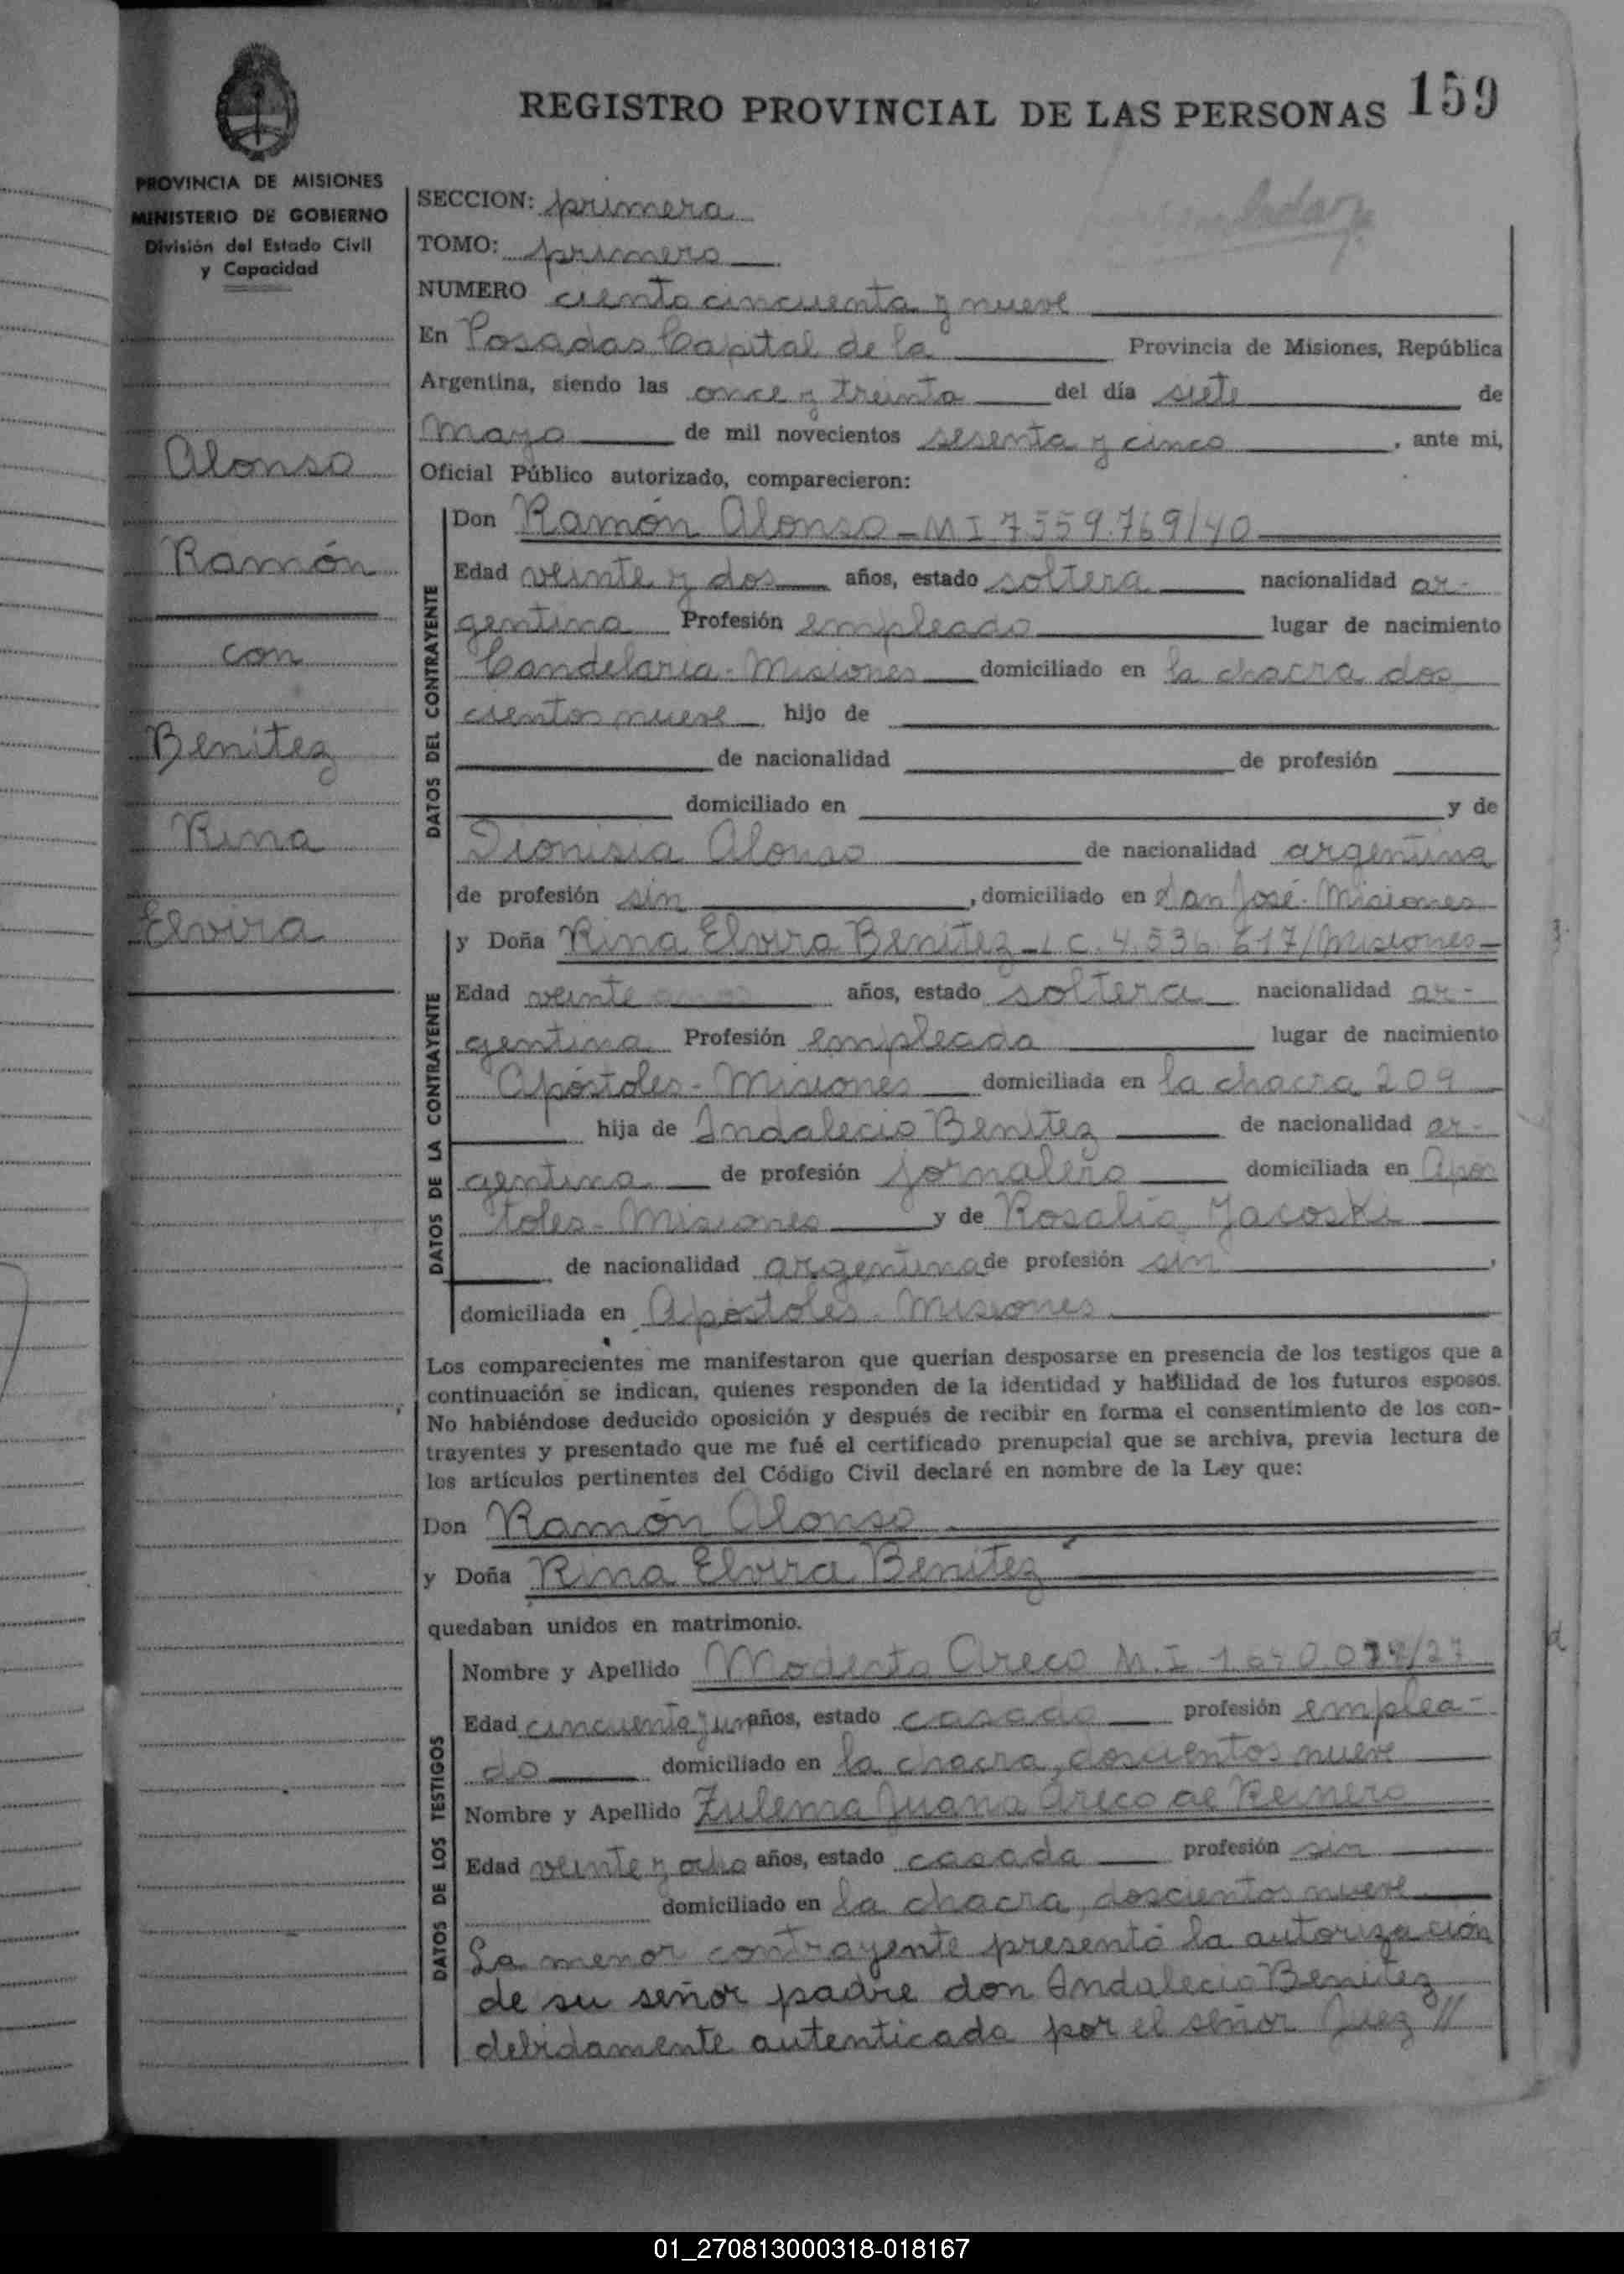 REGISTRO PROVINCIAL DE LAS PERSONAS 159
PROVINCIA DE MISIONES
MINISTERIO DE GOBIERNO
División del Estado Civil
y Capacidad
Alonso
Ramón
con
Benitez
Rina
Elvira
SECCION: primera
TOMO: primero
NUMERO ciento cincuenta y nueve
En Posadas Capital de la Provincia de Misiones, República
Argentina, siendo las once y treinta del día siete de
mayo de mil novecientos sesenta y cinco, ante mi,
Oficial Público autorizado, comparecieron:
DATOS DEL CONTRAYENTE
Don Ramón Alonso - M I 7559.769/40
Edad veinte y dos años, estado soltera nacionalidad ar-
gentina Profesión empleado lugar de nacimiento
Candelaria - Misiones domiciliado en la chacra dos
cientos nueve hijo de
de nacionalidad de profesión
domiciliado en y de
Dionisia Alonso de nacionalidad argentina
de profesión sin, domiciliado en San José - Misiones
DATOS DE LA CONTRAYENTE
y Doña Rina Elvira Benitez - L C. 4.536.617/Misiones
Edad veinte años, estado soltera nacionalidad ar-
gentina Profesión empleada lugar de nacimiento
Apóstoles - Misiones domiciliada en la chacra 209
hija de Indalecio Benitez de nacionalidad ar-
gentina de profesión jornalero domiciliada en Apos
toles - Misiones y de Rosalia Jacoski
de nacionalidad argentina de profesión sin,
domiciliada en Apóstoles - Misiones
Los comparecientes me manifestaron que querían desposarse en presencia de los testigos que a
continuación se indican, quienes responden de la identidad y habilidad de los futuros esposos.
No habiéndose deducido oposición y después de recibir en forma el consentimiento de los con-
trayentes y presentado que me fué el certificado prenupcial que se archiva, previa lectura de
los artículos pertinentes del Código Civil declaré en nombre de la Ley que:
Don Ramón Alonso
y Doña Rina Elvira Benitez
quedaban unidos en matrimonio.
DATOS DE LOS TESTIGOS
Nombre y Apellido Modesto Areco M. I
Edad cincuenta y un años, estado casado profesión emplea-
do domiciliado en la chacra, doscientos nueve
Nombre y Apellido Zulema Juana Areco de
Edad veinte y ocho años, estado casada profesión sin
domiciliado en la chacra, doscientos nueve
La menor contrayente presentó la autorización
de su señor padre don Indalecio Benitez
debidamente autenticada por el señor Juez //
01_270813000318-018167